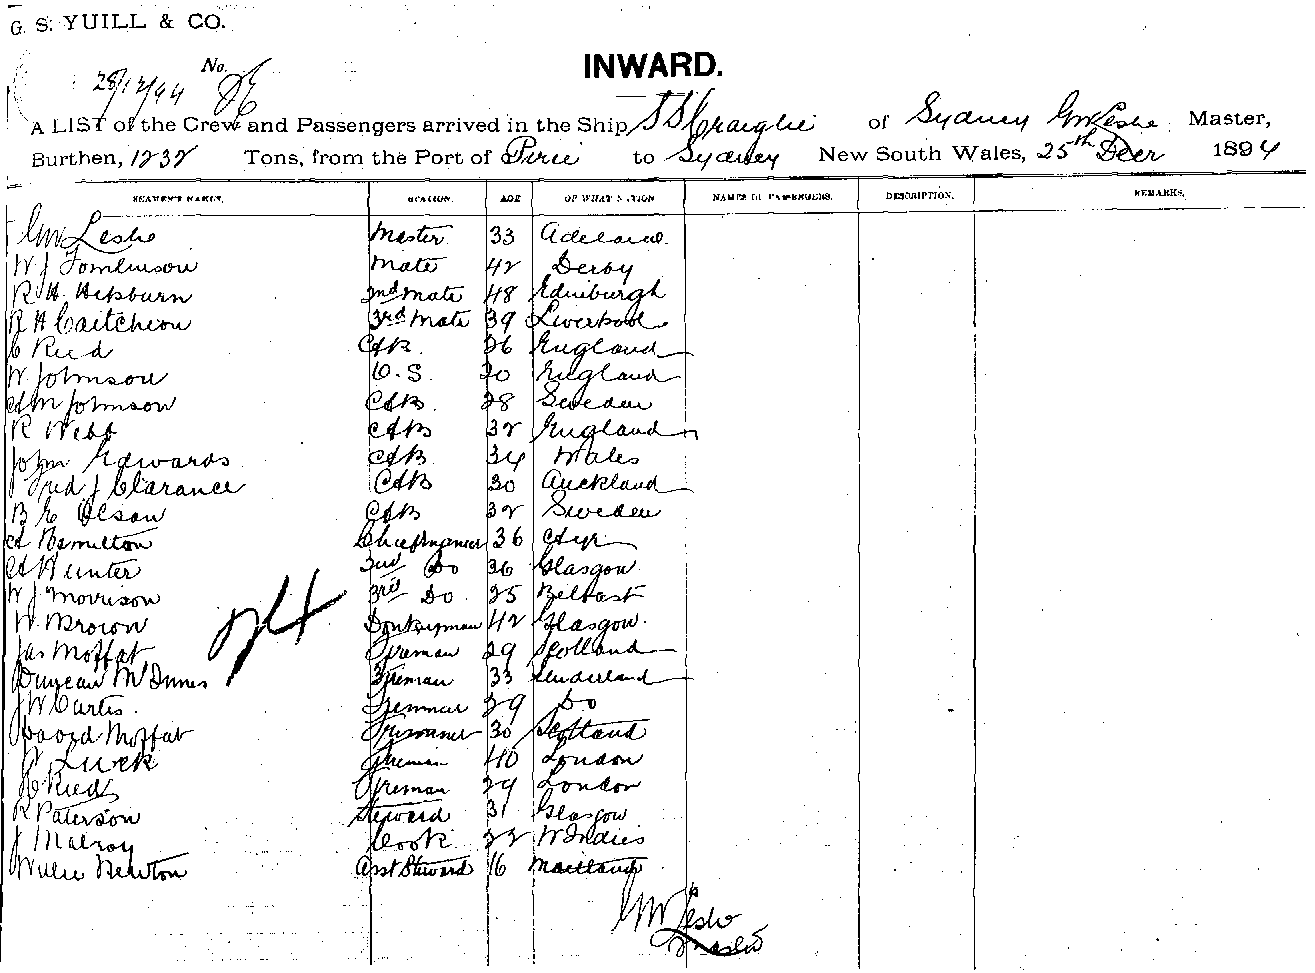 G. S. YUILL & CO.
28/12/94 No.
INWARD.
A LIST of the Crew and Passengers arrived in the Ship SS Craiglie of Sydney GW Leslie Master,
Burthen, 1232 Tons, from the Port of Pirie to Sydney New South Wales, 25th Decr 1894
SEAMEN'S NAMES. STATION. AGE OF WHAT NATION NAMES OF PASSENGERS. DESCRIPTION. REMARKS.
GW Leslie Master 33 Adelaide
W J Tomlinson Mate 42 Derby
R H Hepburn 2nd Mate 48 Edinburgh
R H Caitcheon 3rd Mate 39 Liverpool
C Reid AB 26 England
W Johnson O.S. 20 England
A M Johnson AB 28 Sweden
R Webb AB 32 England
John Edwards AB 34 Wales
Fred J Clarance AB 30 Auckland
B E Olson AB 32 Sweden
A Hamilton Chief Engineer 36 Ayr
A Hunter 2nd Do 26 Glasgow
W J Morrison 3rd Do 25 Belfast
W. Brown Donkeyman 42 Glasgow
Jas Moffat Fireman 29 Scotland
Duncan McInnes Fireman 33 Sunderland
J W Curtis Fireman 29 Do
David Moffat Trimmer 30 Scotland
Luck Fireman 40 London
Reid Fireman 29 London
R Paterson Steward 31 Glasgow
J Malroy Cook 22 W Indies
Willie Newton Asst Steward 16 Maitland
GW Leslie
Master